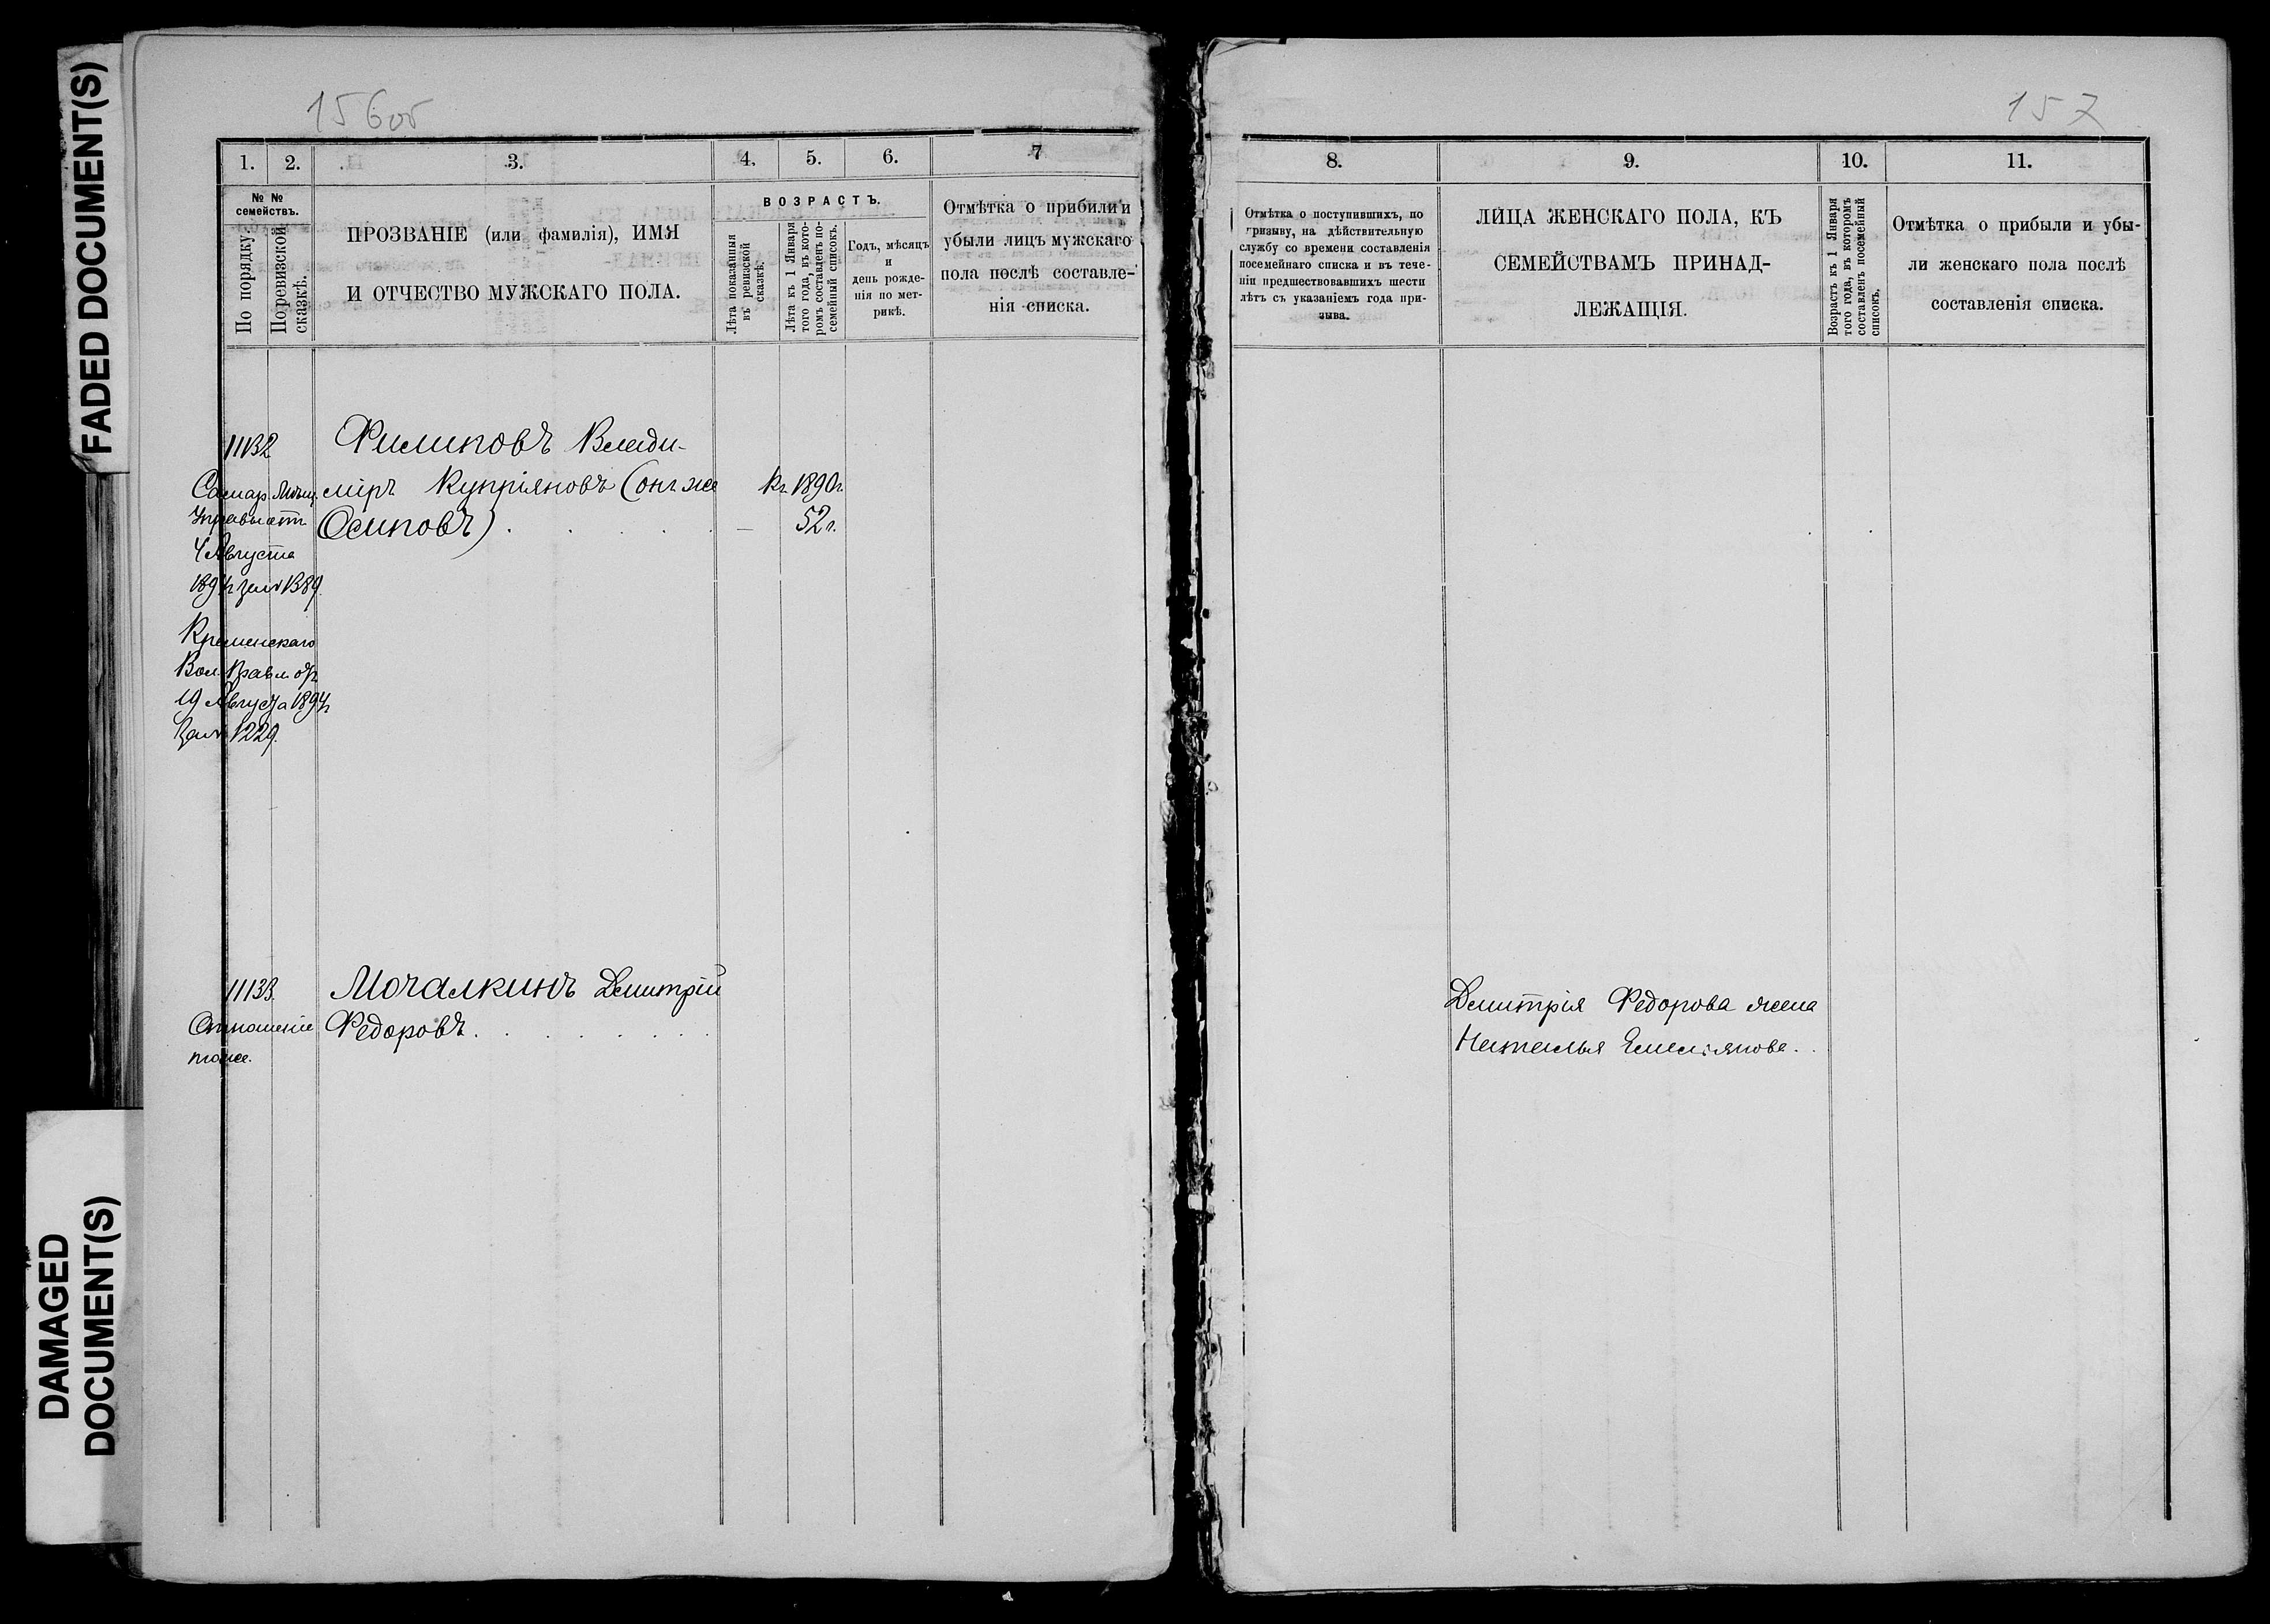 FADED DOCUMENT(S)
DAMAGED
DOCUMENT(S)
156об
1.
2.
3.
4.
5.
6.
7
№ №
семействъ.
По порядку.
По ревизской
сказкѣ.
ПРОЗВАНІЕ (или фамилія), ИМЯ
И ОТЧЕСТВО МУЖСКАГО ПОЛА.
ВОЗРАСТЪ.
Лѣта показанныя
въ ревизской
сказкѣ.
Лѣта къ 1 Января
того года, въ кото-
ромъ составленъ по-
семейный списокъ.
Годъ, мѣсяцъ
и
день рожде-
нія по мет-
рикѣ.
Отмѣтка о прибыли и
убыли лицъ мужскаго
пола послѣ составле-
нія списка.
Филиповъ Влади-
міръ Купріяновъ (онъ же
Осиповъ)
Къ 1890г.
52 г.
Самар. Мѣщ.
Управы отъ
4 Августа
1894г за № 1389.
Кременскаго
Вол. Правл. отъ
19 Августа 1894г
за № 1229.
Мочалкинъ Дмитрій
Федоровъ.
Отношеніе
тоже.
157
8.
9.
10.
11.
Отмѣтка о поступившихъ, по
призыву, на дѣйствительную
службу со времени составленія
посемейнаго списка и въ тече-
ніи предшествовавшихъ шести
лѣтъ съ указаніемъ года при-
зыва.
ЛИЦА ЖЕНСКАГО ПОЛА, КЪ
СЕМЕЙСТВАМЪ ПРИНАД-
ЛЕЖАЩІЯ.
Возрастъ къ 1 Января
того года, въ которомъ
составленъ посемейный
списокъ.
Отмѣтка о прибыли и убы-
ли женскаго пола послѣ
составленія списка.
Дмитрія Федорова жена
Наталья Емеліянова.